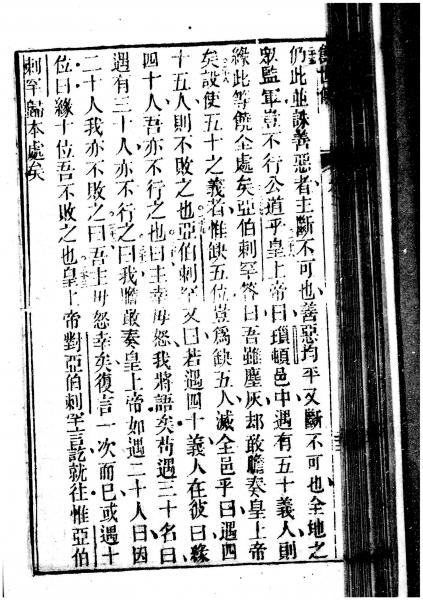 仍此並誅善惡者主斷不可也善惡均平又斷不可也全地之
眾監軍豈不行公道乎皇上帝曰瑣頓邑中遇有五十義人則
緣此等饒全處矣亞伯剌罕答曰吾雖塵灰却敢膽奏皇上帝
矣設使五十之義者惟缺五位豈爲缺五人滅全邑乎曰遇四
十五人則不敗之也亞伯剌罕又曰若遇四十義人在彼曰緣
四十人吾亦不行之也曰主幸毋怒我將語矣苟遇三十名曰
遇有三十人亦不行之曰我膽敢奏皇上帝如遇二十人曰因
二十人我亦不敗之曰吾主毋怒幸矣復言一次而已或遇十
位曰緣十位吾不敗之也皇上帝對亞伯剌罕言訖就往惟亞伯
剌罕歸本處矣